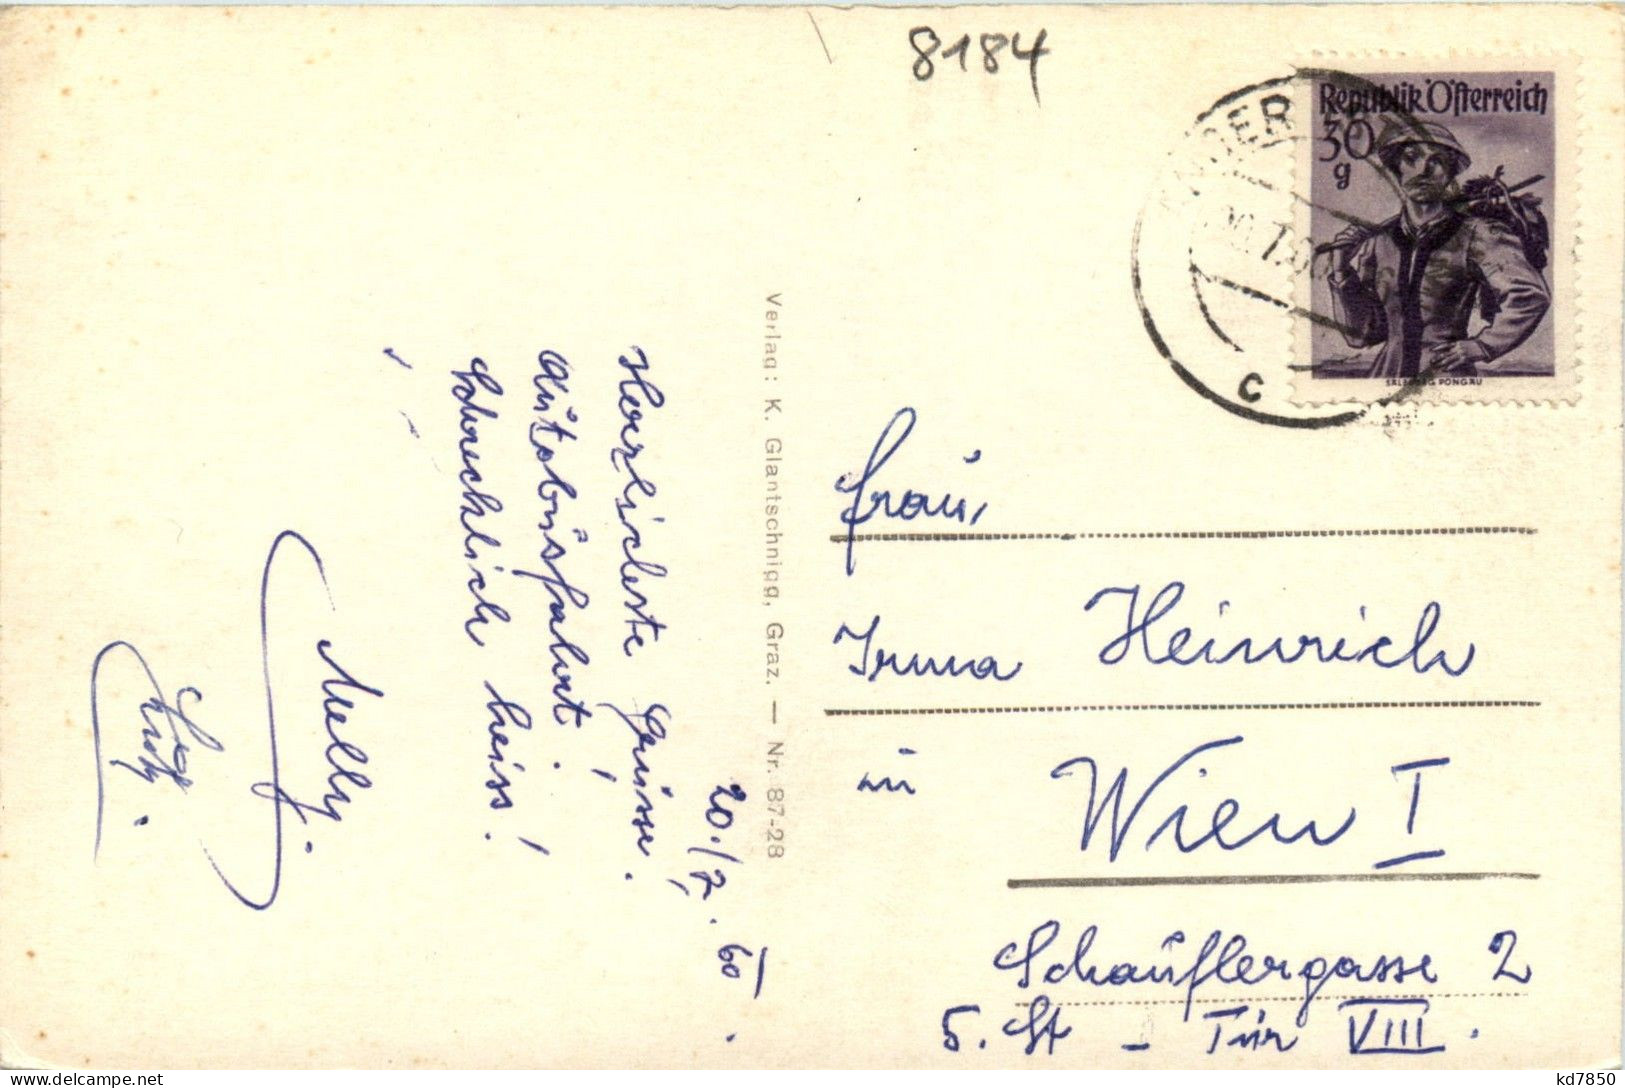 8184
Republik Österreich
30
g
SALZBURG PONGAU
C
Verlag: K. Glantschnigg, Graz. — Nr. 87-28
20./7. 60.
Herzlichste Grüsse.
Autobusfahrt!
Schrecklich heiss!
Melly.
Frau,
Irma Heinrich
in
Wien I
Schauflergasse 2
5. St – Tür VIII.
kd7850